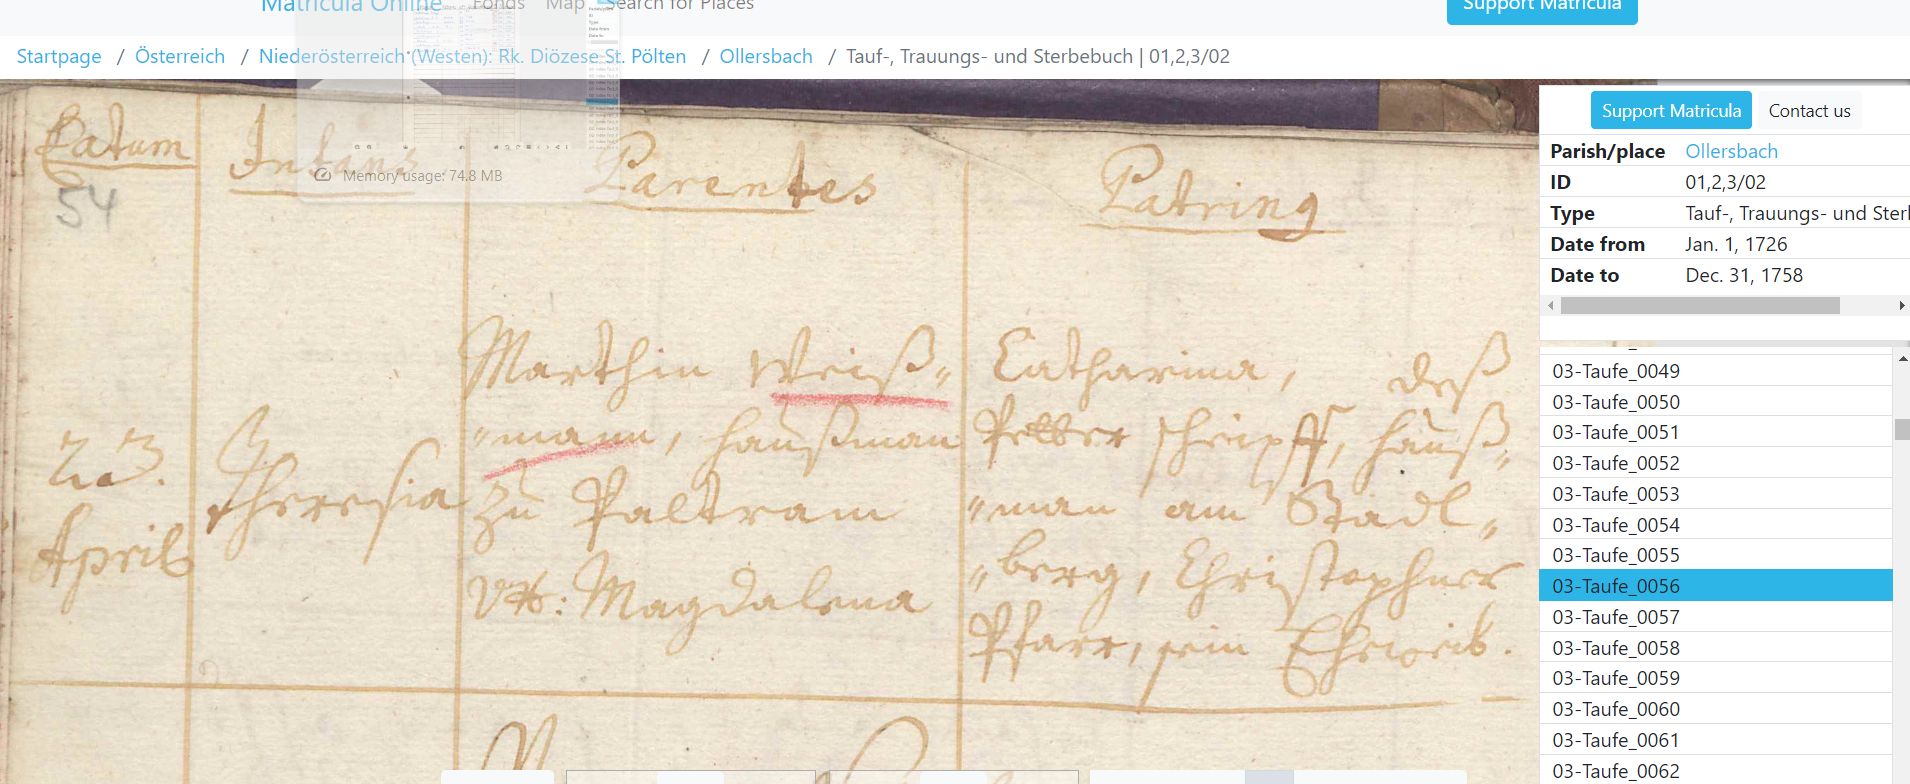 Matricula Online Fonds Map Search for Places
Support Matricula
Startpage / Österreich / Niederösterreich (Westen): Rk. Diözese St. Pölten / Ollersbach / Tauf-, Trauungs- und Sterbebuch | 01,2,3/02
Memory usage: 74.8 MB
Datum
54
Infans
Parentes
Patrinq
23.
April
Theresia
Marthin Weiß„
„mann, haußman
zu Paltram
ux: Magdalena
Catharina, deß
Petter schripff, hauß„
„man am Stadl„
„berg, Christophner
Pfarr, sein Eheweib.
Support Matricula Contact us
Parish/place Ollersbach
ID 01,2,3/02
Type Tauf-, Trauungs- und Ster
Date from Jan. 1, 1726
Date to Dec. 31, 1758
03-Taufe_0049
03-Taufe_0050
03-Taufe_0051
03-Taufe_0052
03-Taufe_0053
03-Taufe_0054
03-Taufe_0055
03-Taufe_0056
03-Taufe_0057
03-Taufe_0058
03-Taufe_0059
03-Taufe_0060
03-Taufe_0061
03-Taufe_0062